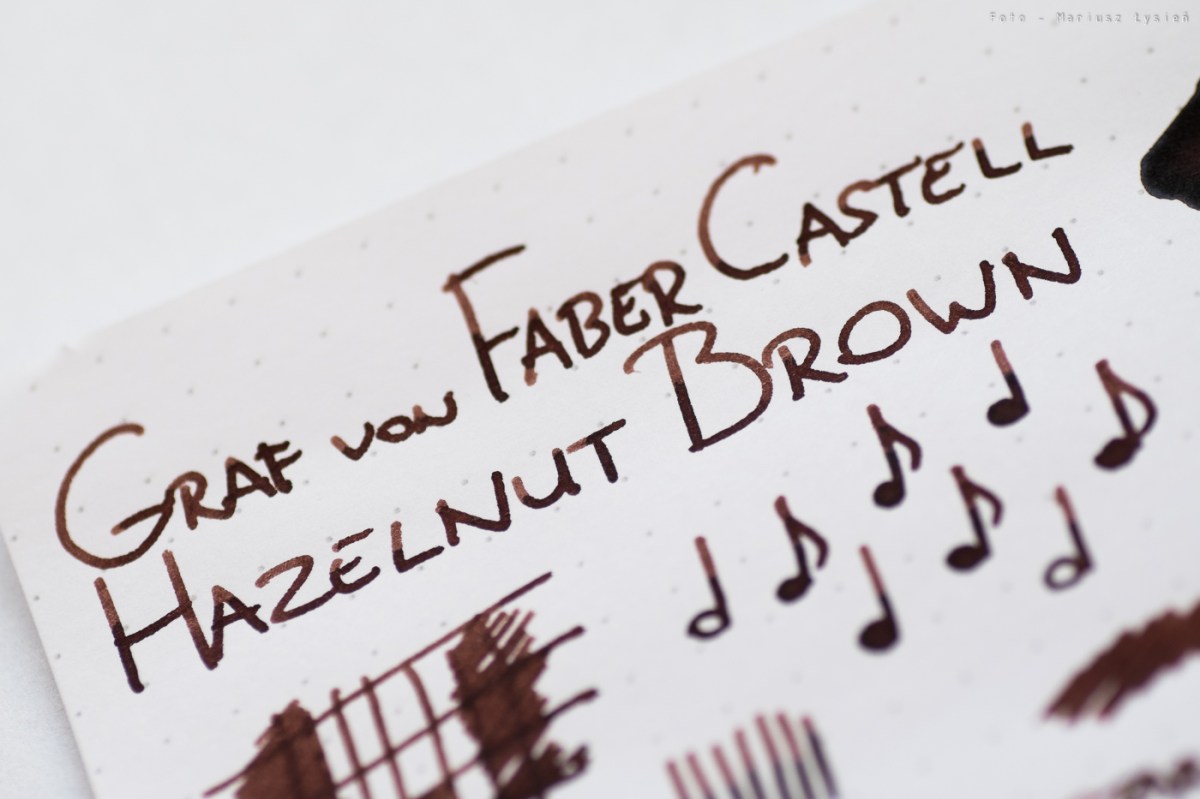 Foto - Mariusz Łysień
GRAF VON FABER CASTELL
HAZELNUT BROWN